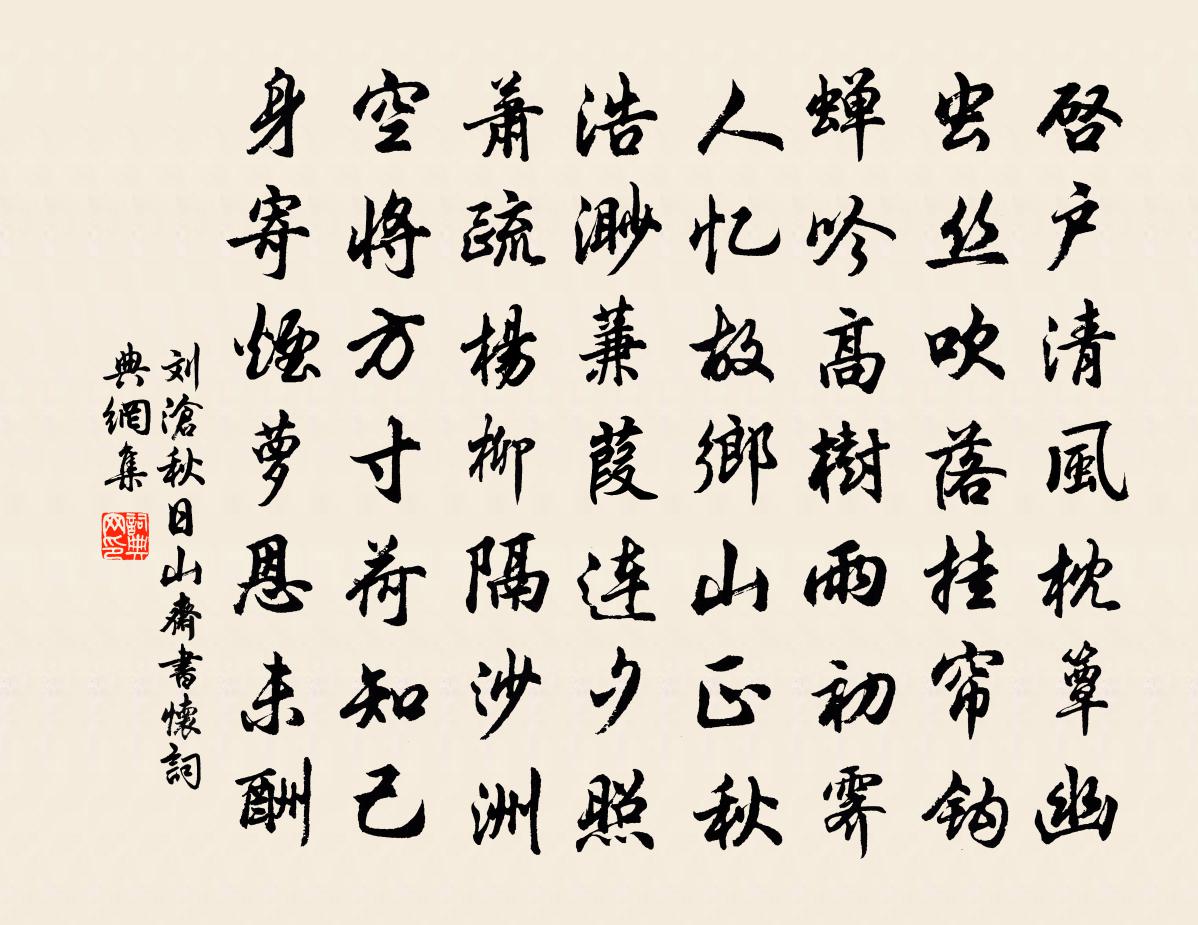 啓户清風枕簟幽
虫丝吹落挂帘鈎
蝉吟高樹雨初霽
人忆故鄉山正秋
浩渺蒹葭連夕照
蕭疏楊柳隔沙洲
空將方寸荷知己
身寄煙蘿恩未酬
刘滄秋日山齋書懷詞
典網集
詞典
网印